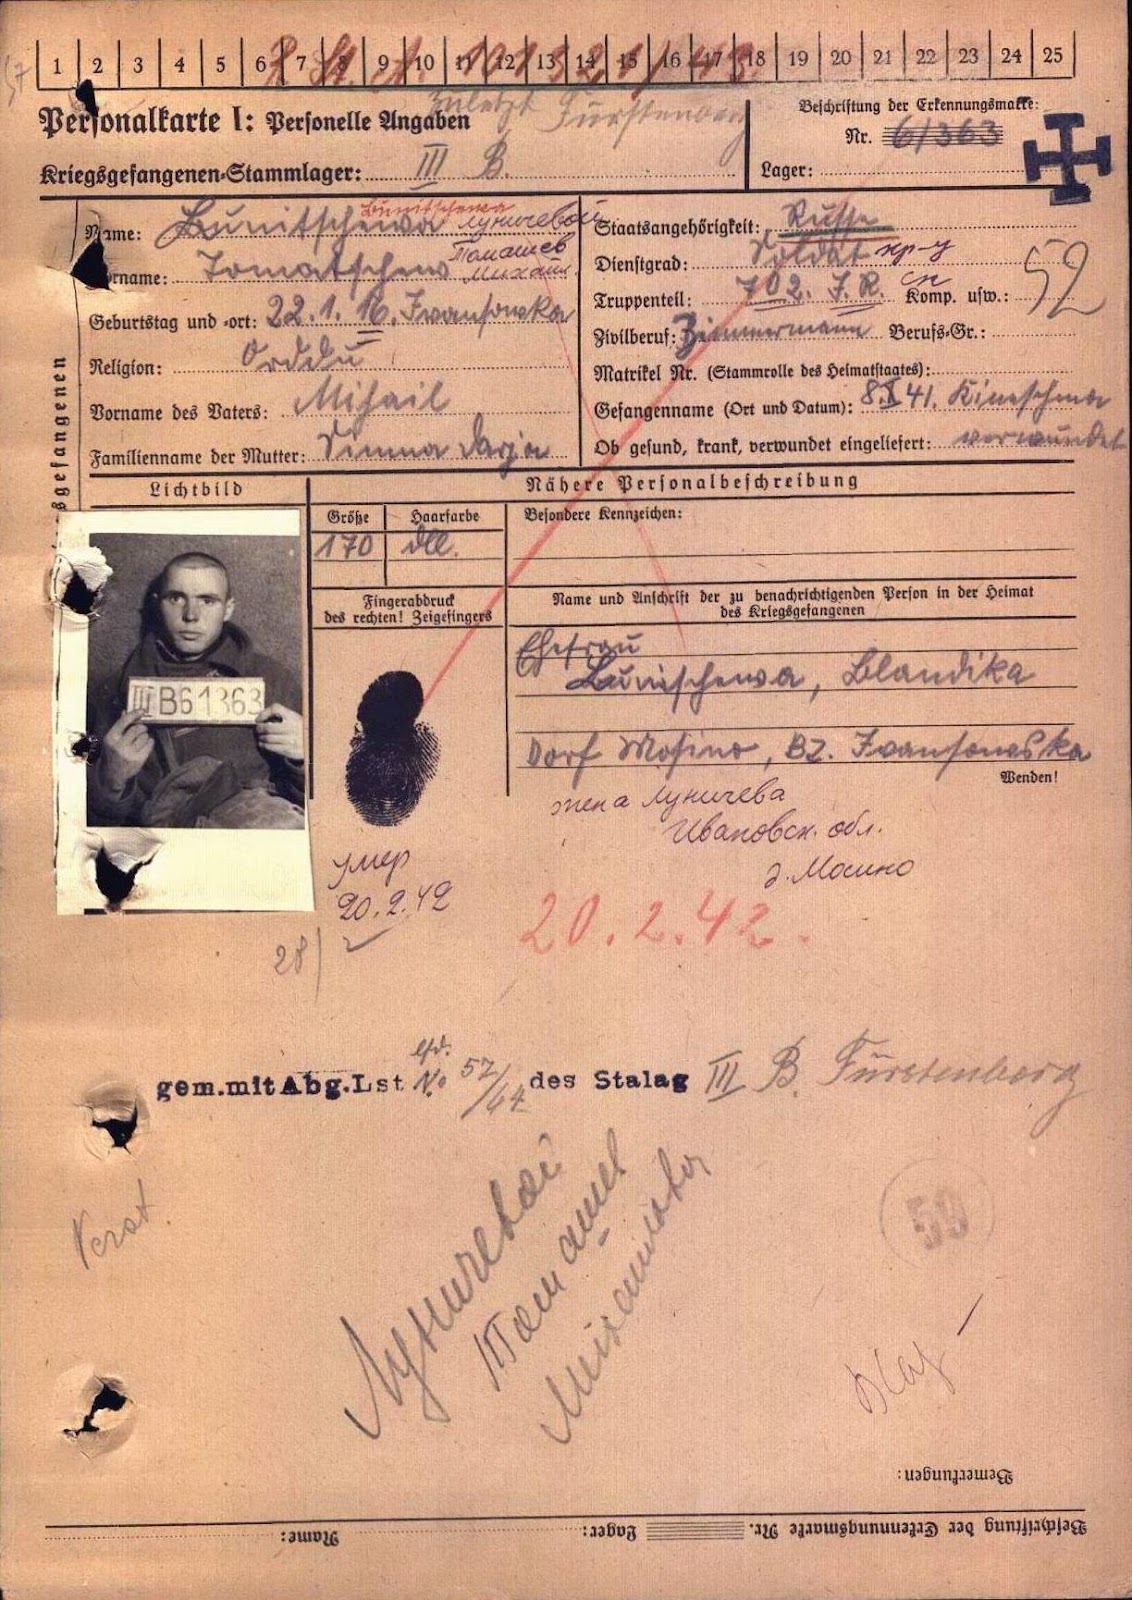 1 2 3 4 5 6 7 8 9 10 11 12 13 14 15 16 17 18 19 20 21 22 23 24 25
Personalkarte I: Personelle Angaben
zuletzt Fürstenberg
Beschriftung der Erkennungsmarke:
Nr. 61363
Kriegsgefangenen-Stammlager: III B.
Lager:
Lunitschewa
Name: Lunitschewa Луничевой
Томашев
Vorname: Tomatschew Михаил
Geburtstag und -ort: 22.1.16. Iwanfowska
Religion:
Vorname des Vaters: Mihail
Familienname der Mutter: Darja
Staatsangehörigkeit: Russe
Dienstgrad: Soldat кр-ц
Truppenteil: 702. I.R. сп Komp. usw.:
52
Zivilberuf: Zimmermann Berufs-Gr.:
Matrikel Nr. (Stammrolle des Heimatstaates):
Gefangenname (Ort und Datum): 8.X.41. Kineschma
Ob gesund, krank, verwundet eingeliefert: verwundet
gefangenen
Lichtbild
III B61363
Nähere Personalbeschreibung
Größe Haarfarbe Besondere Kennzeichen:
170 dll.
Fingerabdruck
des rechten! Zeigefingers
Name und Anschrift der zu benachrichtigenden Person in der Heimat
des Kriegsgefangenen
Ehefrau
Lunischewa, Blandika
Dorf Mosino, Bz. Iwanfowska
Wenden!
жена Луничева
Ивановск. обл.
д. Мосино
умер
20.2.42
20.2.42.
28)
gem.mit Abg.Lst lfd. No 57/64 des Stalag III B. Fürstenberg
Луничевой
Томашев
Михаил
59
Bemerkungen:
Beschriftung der Erkennungsmarke Nr. Lager: Name: